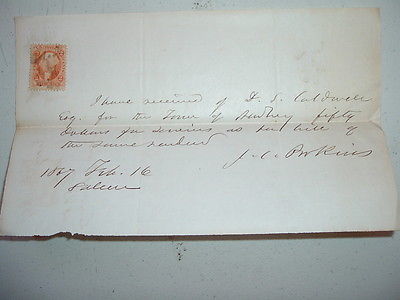 I have received of D. S. Caldwell
Esq. for the Town of Newbury fifty
dollars for services as per bill of
the same rendered
J. C. Perkins
1867 Feb. 16
Salem